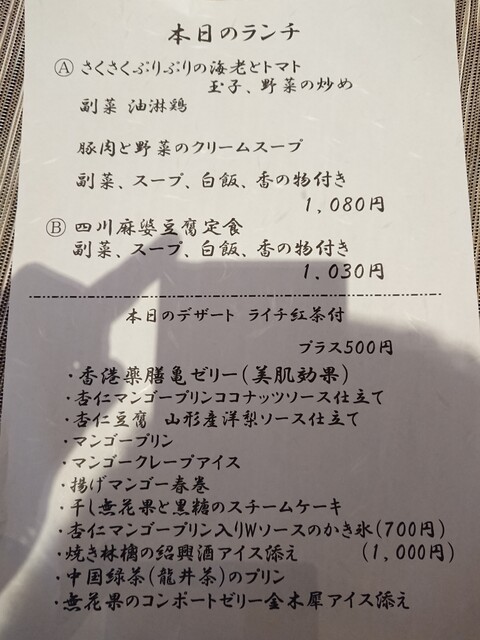 本日のランチ
Ⓐ さくさくぷりぷりの海老とトマト
玉子、野菜の炒め
副菜 油淋鶏
豚肉と野菜のクリームスープ
副菜、スープ、白飯、香の物付き
1,080円
Ⓑ 四川麻婆豆腐定食
副菜、スープ、白飯、香の物付き
1,030円
本日のデザート ライチ紅茶付
プラス500円
・香港薬膳亀ゼリー(美肌効果)
・杏仁マンゴープリンココナッツソース仕立て
・杏仁豆腐 山形産洋梨ソース仕立て
・マンゴープリン
・マンゴークレープアイス
・揚げマンゴー春巻
・干し無花果と黒糖のスチームケーキ
・杏仁マンゴープリン入りWソースのかき氷(700円)
・焼き林檎の紹興酒アイス添え (1,000円)
・中国緑茶(龍井茶)のプリン
・無花果のコンポートゼリー金木犀アイス添え